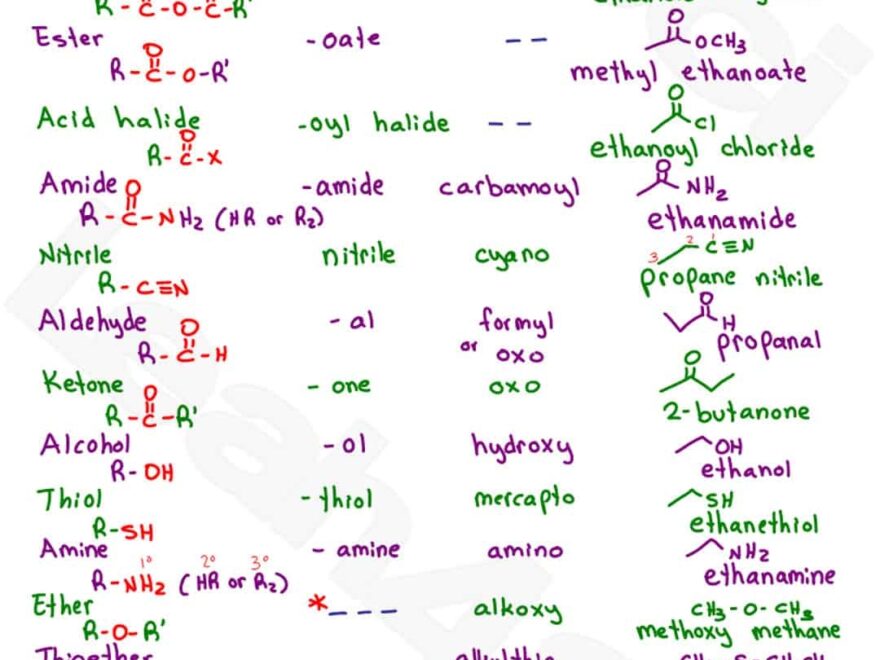 R - C - O - C - R'
Ester -oate -- O OCH3
R - C - O - R' methyl ethanoate
O
Acid halide -oyl halide -- O Cl
R - C - X ethanoyl chloride
O
Amide -amide carbamoyl O NH2
R - C - NH2 (HR or R2) ethanamide
O
Nitrile nitrile cyano 3 2 1 C≡N
R - C≡N propane nitrile
Aldehyde - al formyl O H
R - C - H or oxo propanal
O
Ketone - one oxo O
R - C - R' 2-butanone
O
Alcohol - ol hydroxy OH
R - OH ethanol
Thiol - thiol mercapto SH
R - SH ethanethiol
Amine - amine amino NH2
1° 2° 3°
R - NH2 (HR or R2) ethanamine
Ether *--- alkoxy CH3 - O - CH3
R - O - R' methoxy methane
Thioether